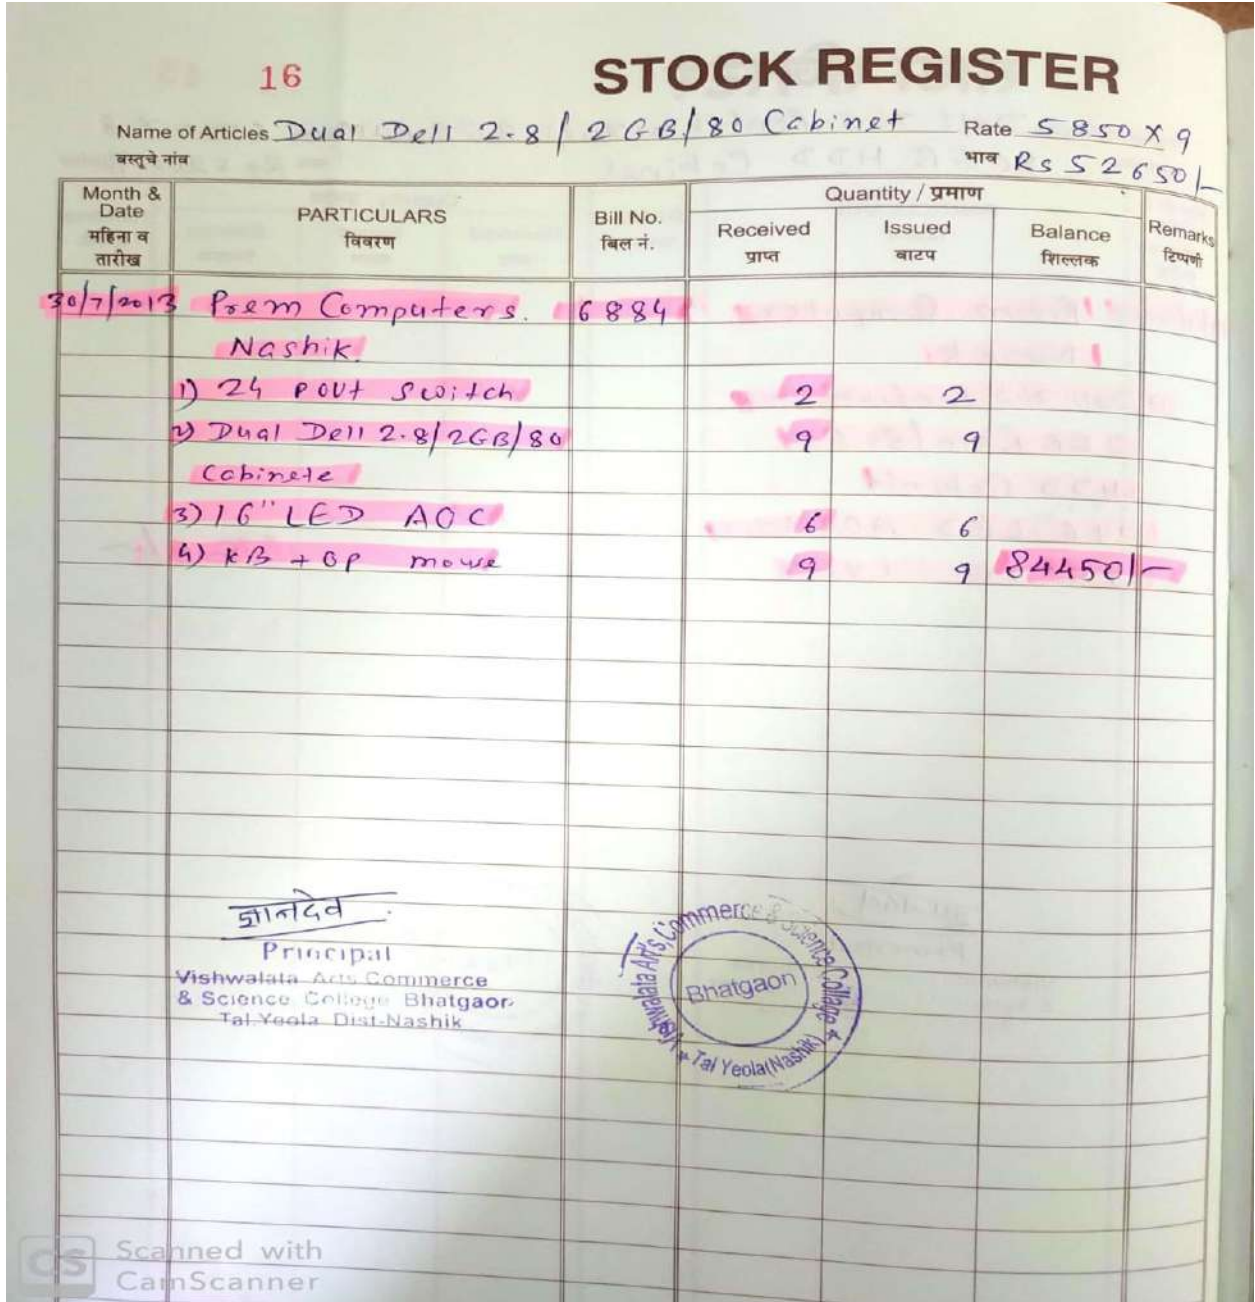 16
STOCK REGISTER
Name of Articles Dual Dell 2.8 / 2 GB/ 80 Cabinet Rate 5850 X 9
वस्तूचे नांव भाव Rs 52650/-
Month & Date महिना व तारीख PARTICULARS विवरण Bill No. बिल नं. Quantity / प्रमाण Received प्राप्त Issued वाटप Balance शिल्लक Remarks टिप्पणी
30/7/2013 Prem Computers. 6884
Nashik.
1) 24 Pout Switch 2 2
2) Dual Dell 2.8/2GB/80 9 9
Cabinete
3) 16" LED AOC 6 6
4) KB + OP mouse 9 9 84450/-
ज्ञानदेव
Principal
Vishwalata Arts Commerce
& Science College Bhatgaon
Tal.Yeola Dist-Nashik
Vishwalata Arts, Commerce & Science College
Bhatgaon
Tal Yeola(Nashik)
CS Scanned with
CamScanner